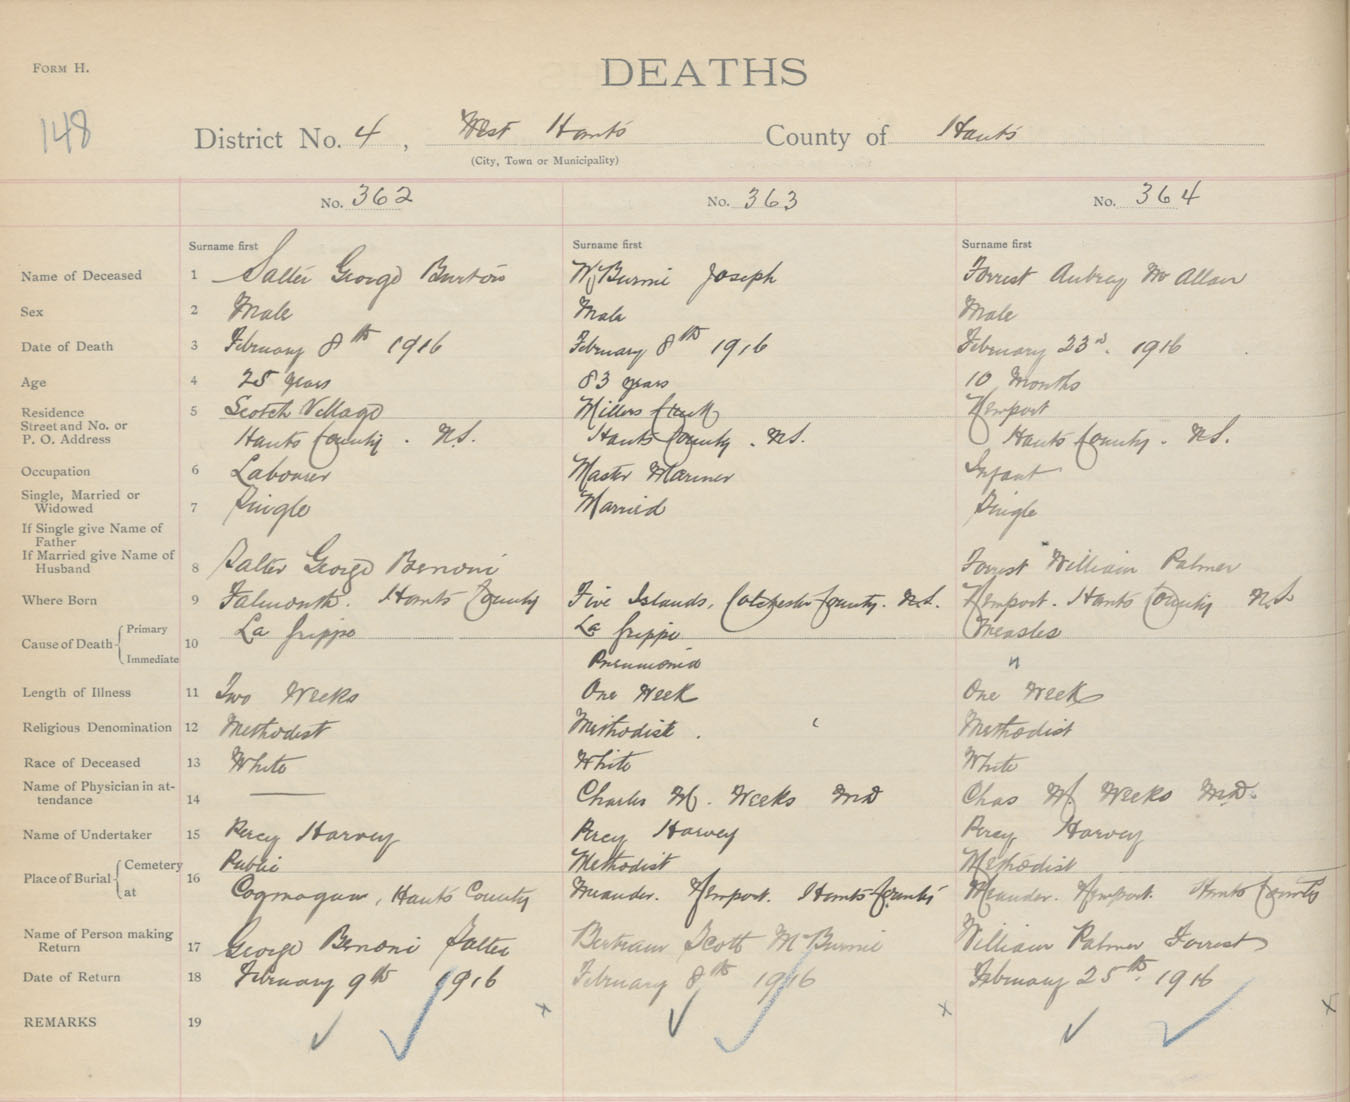 FORM H.
DEATHS
148
District No. 4, West Hants County of Hants
(City, Town or Municipality)
No. 362 No. 363 No. 364
Surname first Surname first Surname first
Name of Deceased 1 Salter George Burton McBurnie Joseph Forrest Aubrey
Sex 2 Male Male Male
Date of Death 3 February 8th 1916 February 8th 1916 February 23rd. 1916
Age 4 25 years 83 years 10 Months
Residence 5 Scotch Village Millers Creek Kempt
Street and No. or
P. O. Address Hants County. N.S. Hants County. N.S. Hants County. N.S.
Occupation 6 Labourer Master Mariner Infant
Single, Married or
Widowed 7 Single Married Single
If Single give Name of
Father
If Married give Name of
Husband 8 Salter George Benoni Forrest William Palmer
Where Born 9 Falmouth. Hants County Five Islands, Colchester County. N.S. Hants County N.S
Cause of Death Primary 10 La Grippe La Grippe Measles
Immediate Pneumonia "
Length of Illness 11 Two Weeks One Week One Week
Religious Denomination 12 Methodist Methodist. Methodist
Race of Deceased 13 White White White
Name of Physician in at-
tendance 14 —— Charles M. Weeks MD Chas M. Weeks M.D.
Name of Undertaker 15 Percy Harvey Percy Harvey Percy Harvey
Place of Burial Cemetery 16 Public Methodist Methodist
at Cogmagun, Hants County Meander. Newport. Hants County Meander. Newport. Hants County
Name of Person making
Return 17 George Benoni Salter Bertram Scott McBurnie William Palmer Forrest
Date of Return 18 February 9th 1916 February 8th 1916 February 25th. 1916
REMARKS 19